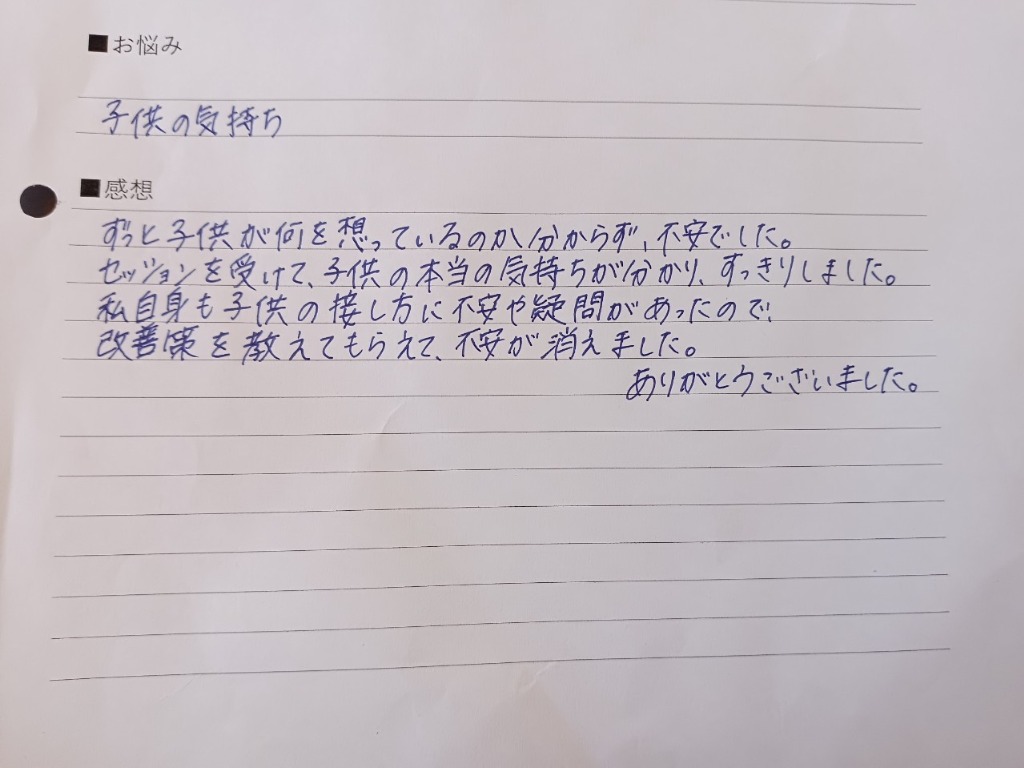 ■お悩み
子供の気持ち
■感想
ずっと子供が何を想っているのか分からず、不安でした。
セッションを受けて、子供の本当の気持ちが分かり、すっきりしました。
私自身も子供の接し方に不安や疑問があったので、
改善策を教えてもらえて、不安が消えました。
ありがとうございました。